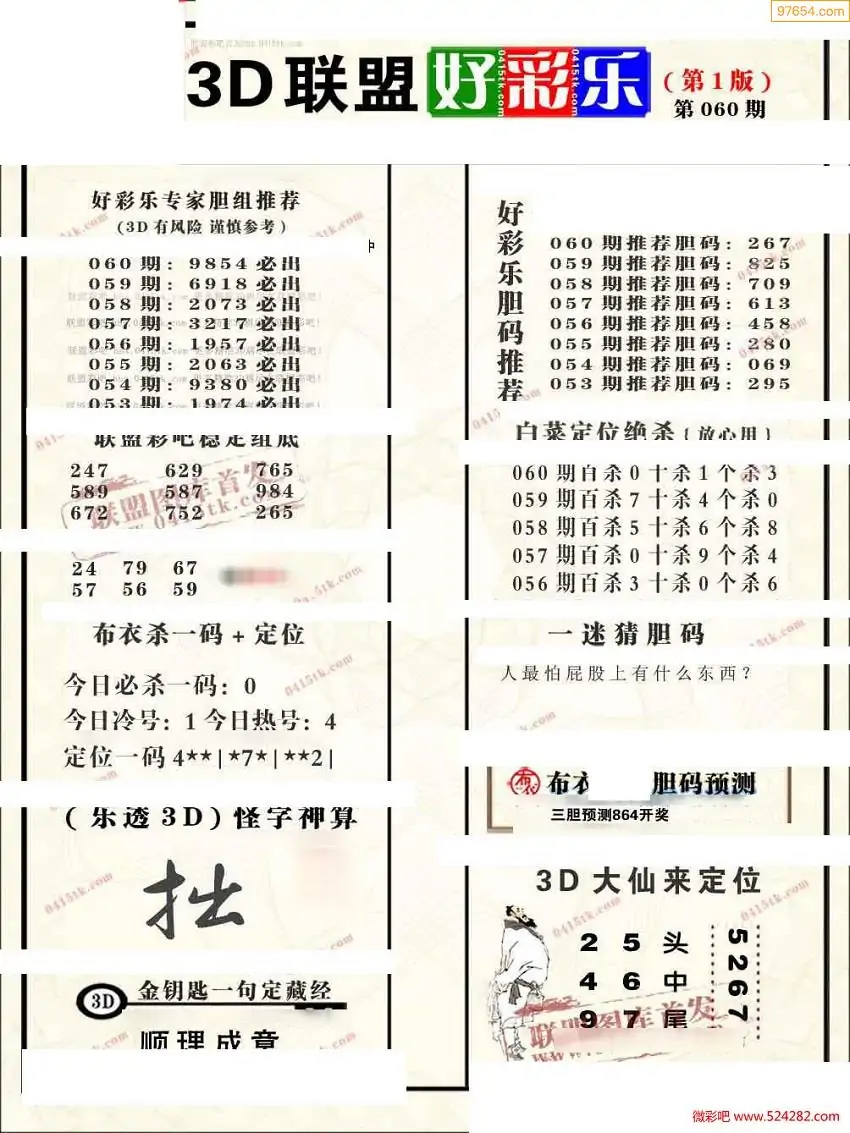 97654.com
3D联盟 好彩乐 (第1版)
第060期
好彩乐专家胆组推荐
(3D有风险 谨慎参考)
060期: 9854必出
059期: 6918必出
058期: 2073必出
057期: 3217必出
056期: 1957必出
055期: 2063必出
054期: 9380必出
053期: 1974必出
联盟彩吧稳定组底
247 629 765
589 587 984
672 752 265
24 79 67
57 56 59
布衣杀一码+定位
今日必杀一码: 0
今日冷号: 1 今日热号: 4
定位一码 4**|*7*|**2|
(乐透3D) 怪字神算
拙
3D 金钥匙一句定藏经
顺理成章
好彩乐胆码推荐
060期推荐胆码: 267
059期推荐胆码: 825
058期推荐胆码: 709
057期推荐胆码: 613
056期推荐胆码: 458
055期推荐胆码: 280
054期推荐胆码: 069
053期推荐胆码: 295
白菜定位绝杀{放心用}
060期百杀0十杀1个杀3
059期百杀7十杀4个杀0
058期百杀5十杀6个杀8
057期百杀0十杀9个杀4
056期百杀3十杀0个杀6
一迷猜胆码
人最怕屁股上有什么东西?
布衣 胆码预测
三胆预测864开奖
3D大仙来定位
2 5 头
4 6 中
9 7 尾
5267
联盟图库首发
0415tk.com
微彩吧 www.524282.com